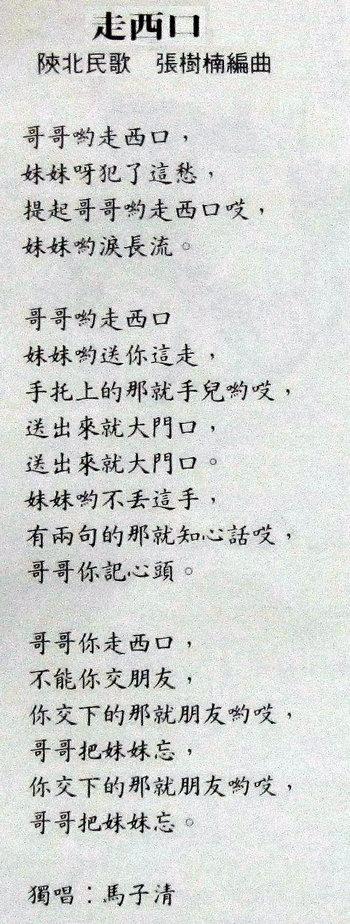 走西口
陝北民歌　張樹楠編曲
哥哥喲走西口，
妹妹呀犯了這愁，
提起哥哥喲走西口哎，
妹妹喲淚長流。
哥哥喲走西口
妹妹喲送你這走，
手托上的那就手兒喲哎，
送出來就大門口，
送出來就大門口。
妹妹喲不丟這手，
有兩句的那就知心話哎，
哥哥你記心頭。
哥哥你走西口，
不能你交朋友，
你交下的那就朋友喲哎，
哥哥把妹妹忘，
你交下的那就朋友喲哎，
哥哥把妹妹忘。
獨唱：馬子清